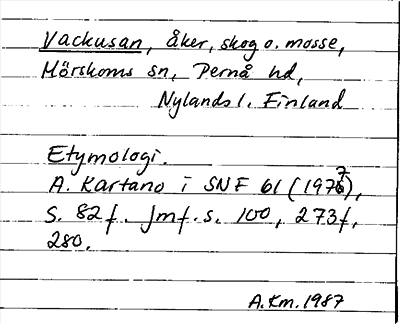 Vackusan, åker, skog o. mosse,
Mörskoms sn, Pernå hd,
Nylands l. Finland
Etymologi.
A. Kartano i SNF 61 (1977),
S. 82 f. Jmf. s. 100, 273 f,
280.
A.Km. 1987